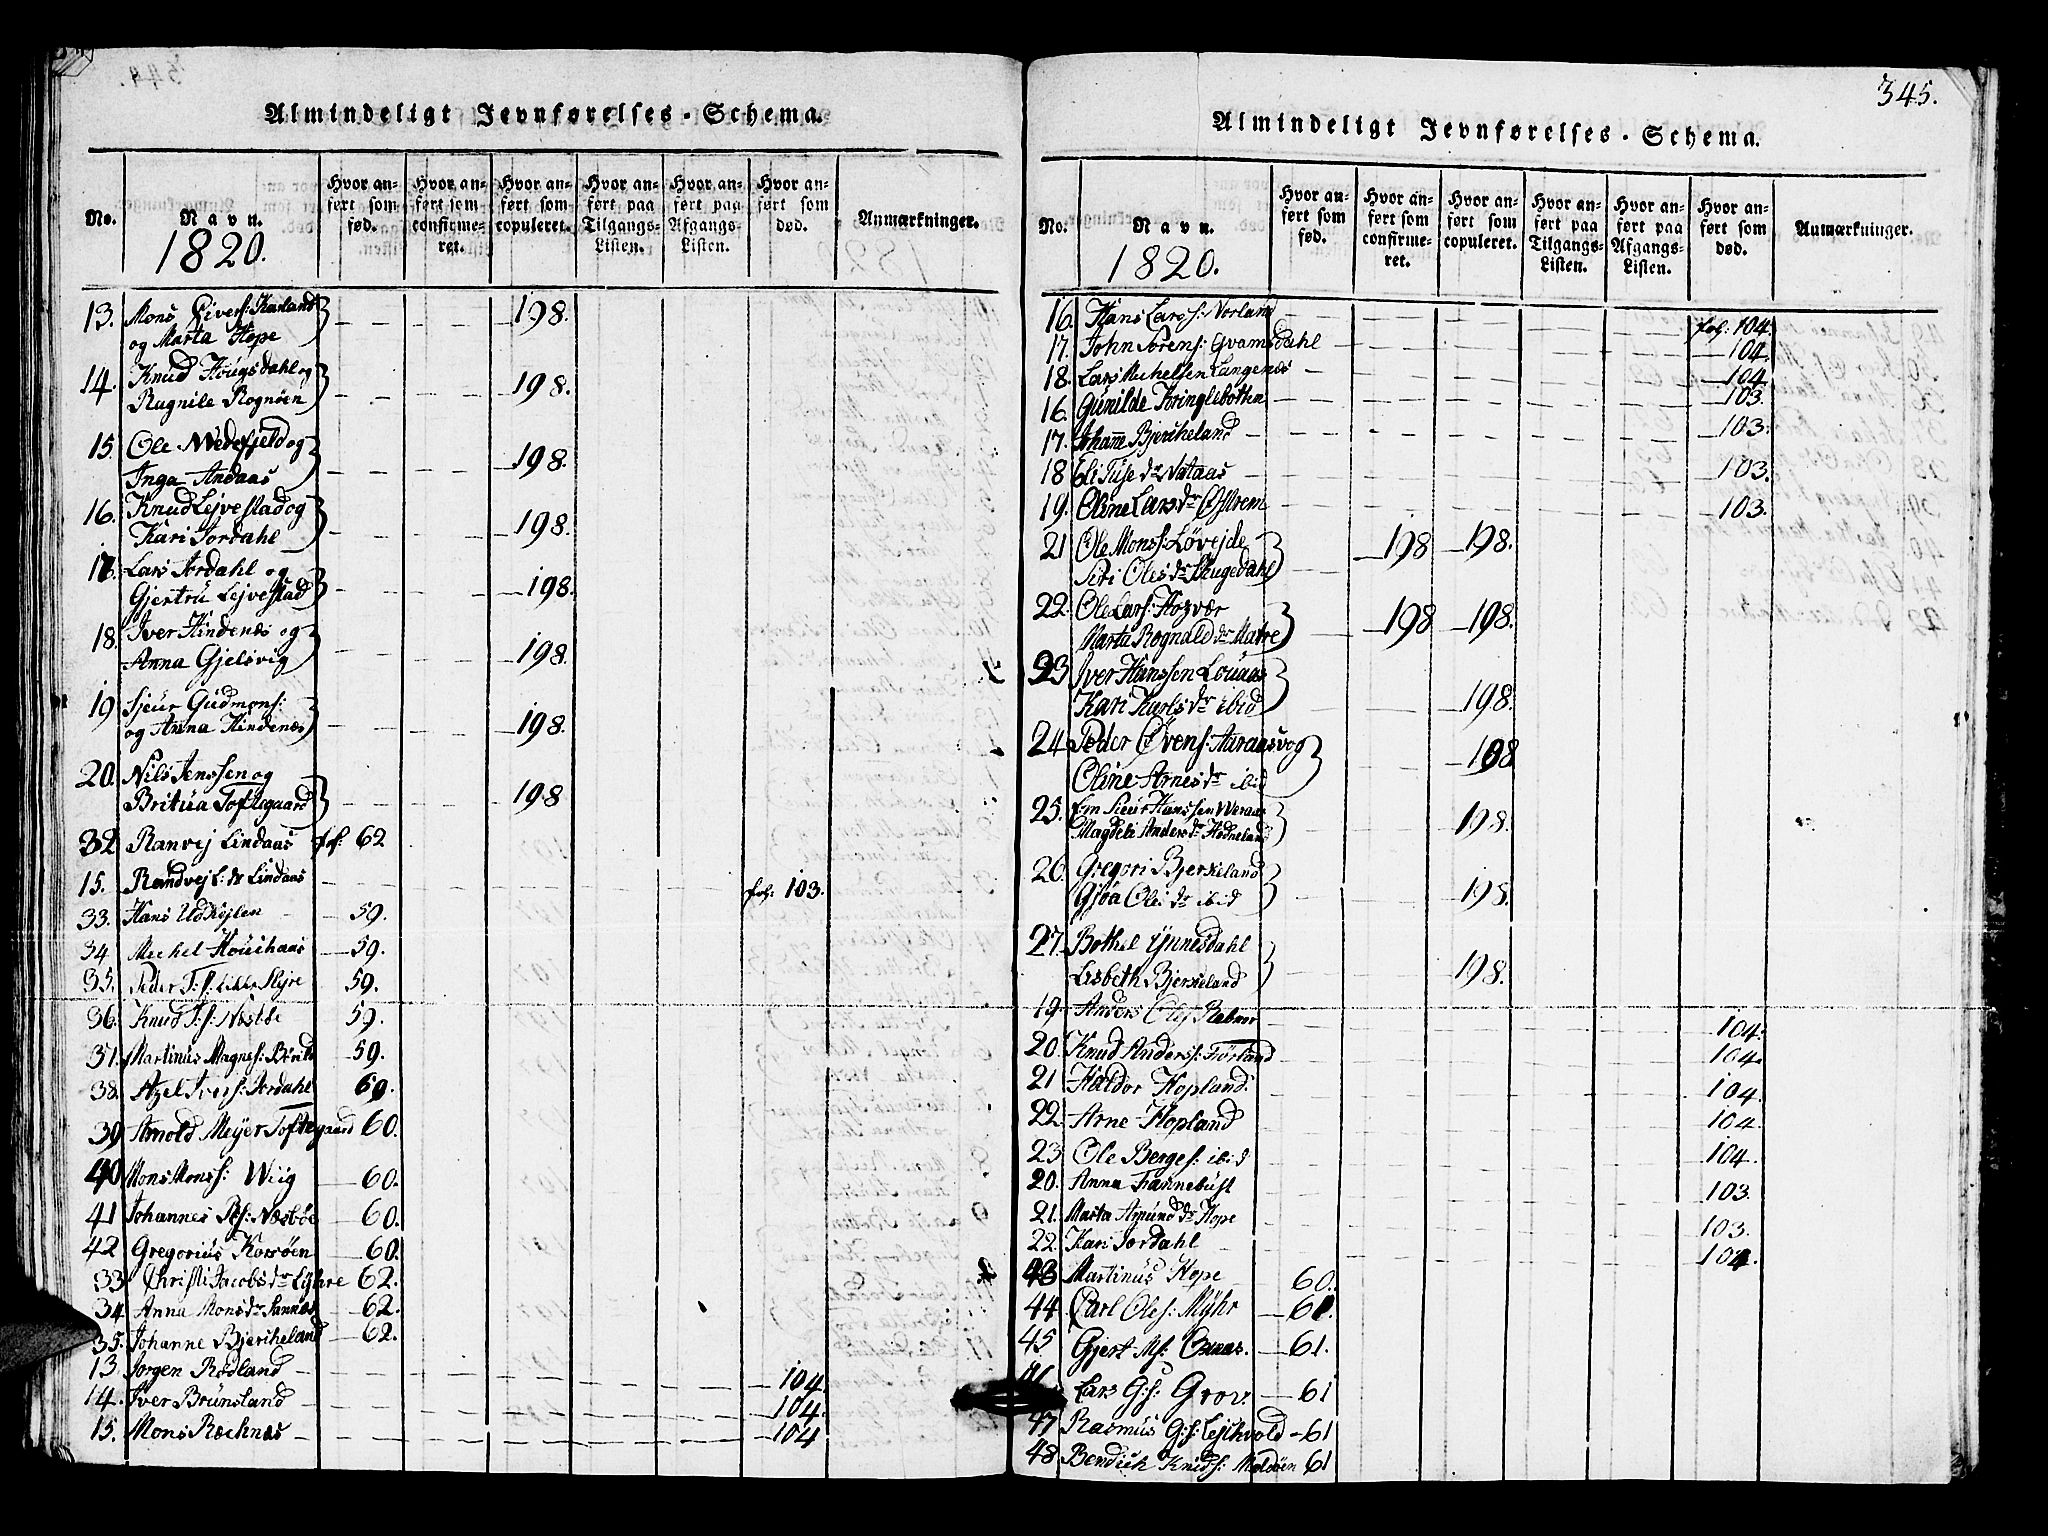 Almindeligt Jevnførelses-Schema.
No. Navn. 1820. Hvor anført som fød. Hvor anført som confirmeret. Hvor anført som copuleret. Hvor anført paa Tilgangs-Listen. Hvor anført paa Afgangs-Listen. Hvor anført som død. Anmærkninger.
13. Mons Sivers: Kauland
og Marta Hope 198.
14. Knud Hougsdahl og
Rognøen 198.
15. Ole Wedefjeld og
Inga Andaas 198.
16. Knud Lejvestad og
Kari Jordahl 198.
17. Lars Jordahl og
Gjertru Lejvestad 198.
18. Iver Hindenæs og
Anna Gjelsvig 198.
19 Sjeur Gudmons:
og Anna Hindenæs 198.
20. Nils Jenssen og
Britha Toftegaard 198
32. Ranvej Lindaas fol: 62
15. Randvej L: dr Lindaas fol: 103.
33. Hans 59.
34 Mechel 59.
35. Peder 59.
36. Knud 59.
37. Martinus Magnes: 59.
38. Axel Ivers: Jordahl 60.
39 Arnold Meyer Toftegaard 60.
40 Mons Mons: Wiig 60.
41 Johannes Næsbøe 60.
42 Gregorius Korsøen 60.
33 Christi Jacobsdr Lyhre 62.
34 Anna Monsdr Sannæs 62.
35. Johanne Bjerkeland 62.
13 Jørgen Rødland 104.
14. Iver Brunsland 104.
15. Mons Ræknes 104
345.
Almindeligt Jevnførelses-Schema.
No. Navn. 1820. Hvor anført som fød. Hvor anført som confirmeret. Hvor anført som copuleret. Hvor anført paa Tilgangs-Listen. Hvor anført paa Afgangs-Listen. Hvor anført som død. Anmærkninger.
16. Hans Lars: Norland fol: 104.
17. John Sørens: Qvamsdahl 104.
18. Lars Mechelsen Langenæs 104
16 Gunilde Kringlebotten 103.
17. Johanne Bjerkeland 103.
18 Eli dr Nataas 103.
19. Oline Larsdr 103.
21 Ole Mons: Løvejde
Siri Olesdr Haugedahl 198 198.
22. Ole Lars: Hopvær
Marta Rognaldsdr Matre 198 198.
23 Iver Hanssen Louaas
Kari Karlsdr ibid 198.
24 Peder Øvens: og
Oline Arnesdr ibid 198
25. Sieur Hanssen
Magdeli Andersdr Hodneland 198.
26. Gregori Bjerkeland
Gjøa Olesdr ibid 198.
27. Bothel Ynnesdahl
Lisbeth Bjerkeland 198.
19. Anders 104.
20. Knud Anders: Førland 104.
21 Haldor Hopland. 104.
22. Arne Hopland 104
23. Ole Berges: ibid 104.
20. Anna Fannebust 103.
21. Marta Amunddr Hope 103.
22. Kari Jordahl 104.
43 Martinus Hope 60.
44. Carl Oles: Myhr 61.
45 Gjert Ms: 61.
Lars G:s: Grov. 61
47 Rasmus G:s: Lejthvold 61
48 Bendick Knuds: Moldøen 61